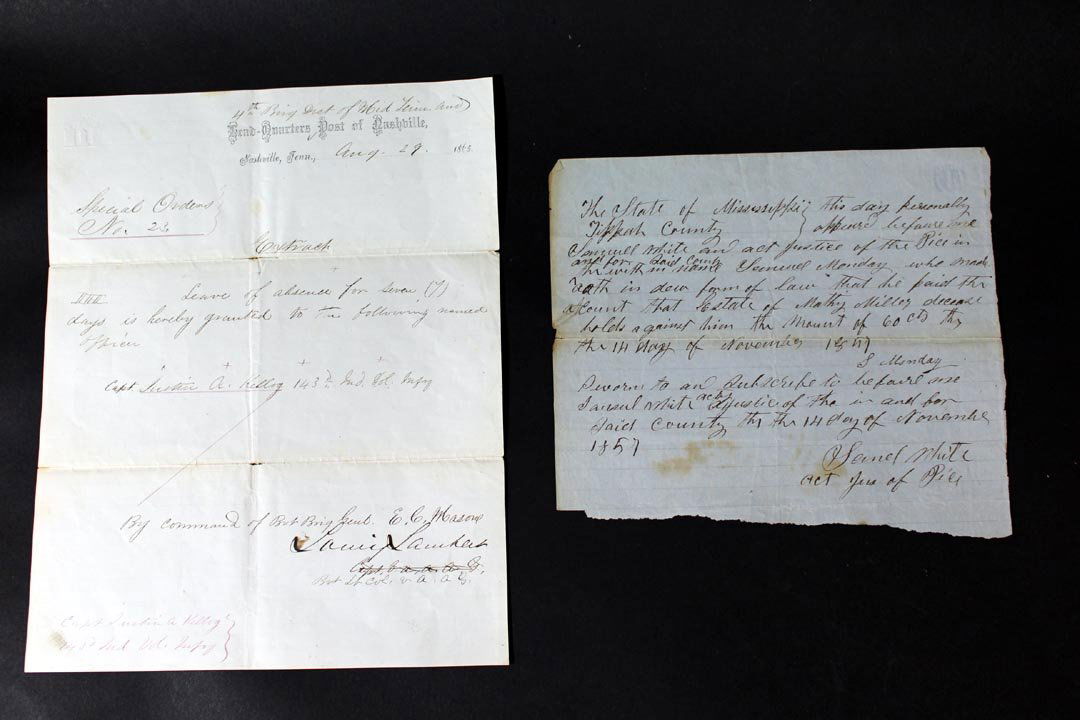 4th Brig Dist of Mid Tenn. and
Head-Quarters Post of Nashville,
Nashville, Tenn., Aug. 29. 1865.
Special Orders }
No. 23 }
Extract
Leave of absence for seven (7)
days is hereby granted to the following named
officer
+ + +
Capt Justin A. Kellog 143d Ind. Vol. Infy
By command of Bvt Brig Genl. E. C. Mason
Louis
Capt. & a. a. a. G.
Bvt Lt Col. & A. A. G.
Capt Justin A Kellog }
143d Ind. Vol. Infy }
The State of Mississippi } this day personally
Tippah County } appeare befaire me
Samuel White an act Justice of the Pice in
and for Said County
the with in name Samuel Monday who made
oath in dew form of law that he paid the
acount that Estate of Mathy Miller decease
holds against him the Mount of 60 cts this
the 14 day of November 1857
S Monday
Sworn to an Subscribe to befaire me
Samul White act Justice of the in and for
Said County this the 14 day of Novembe
1857
Samel White
act Jus of Pice